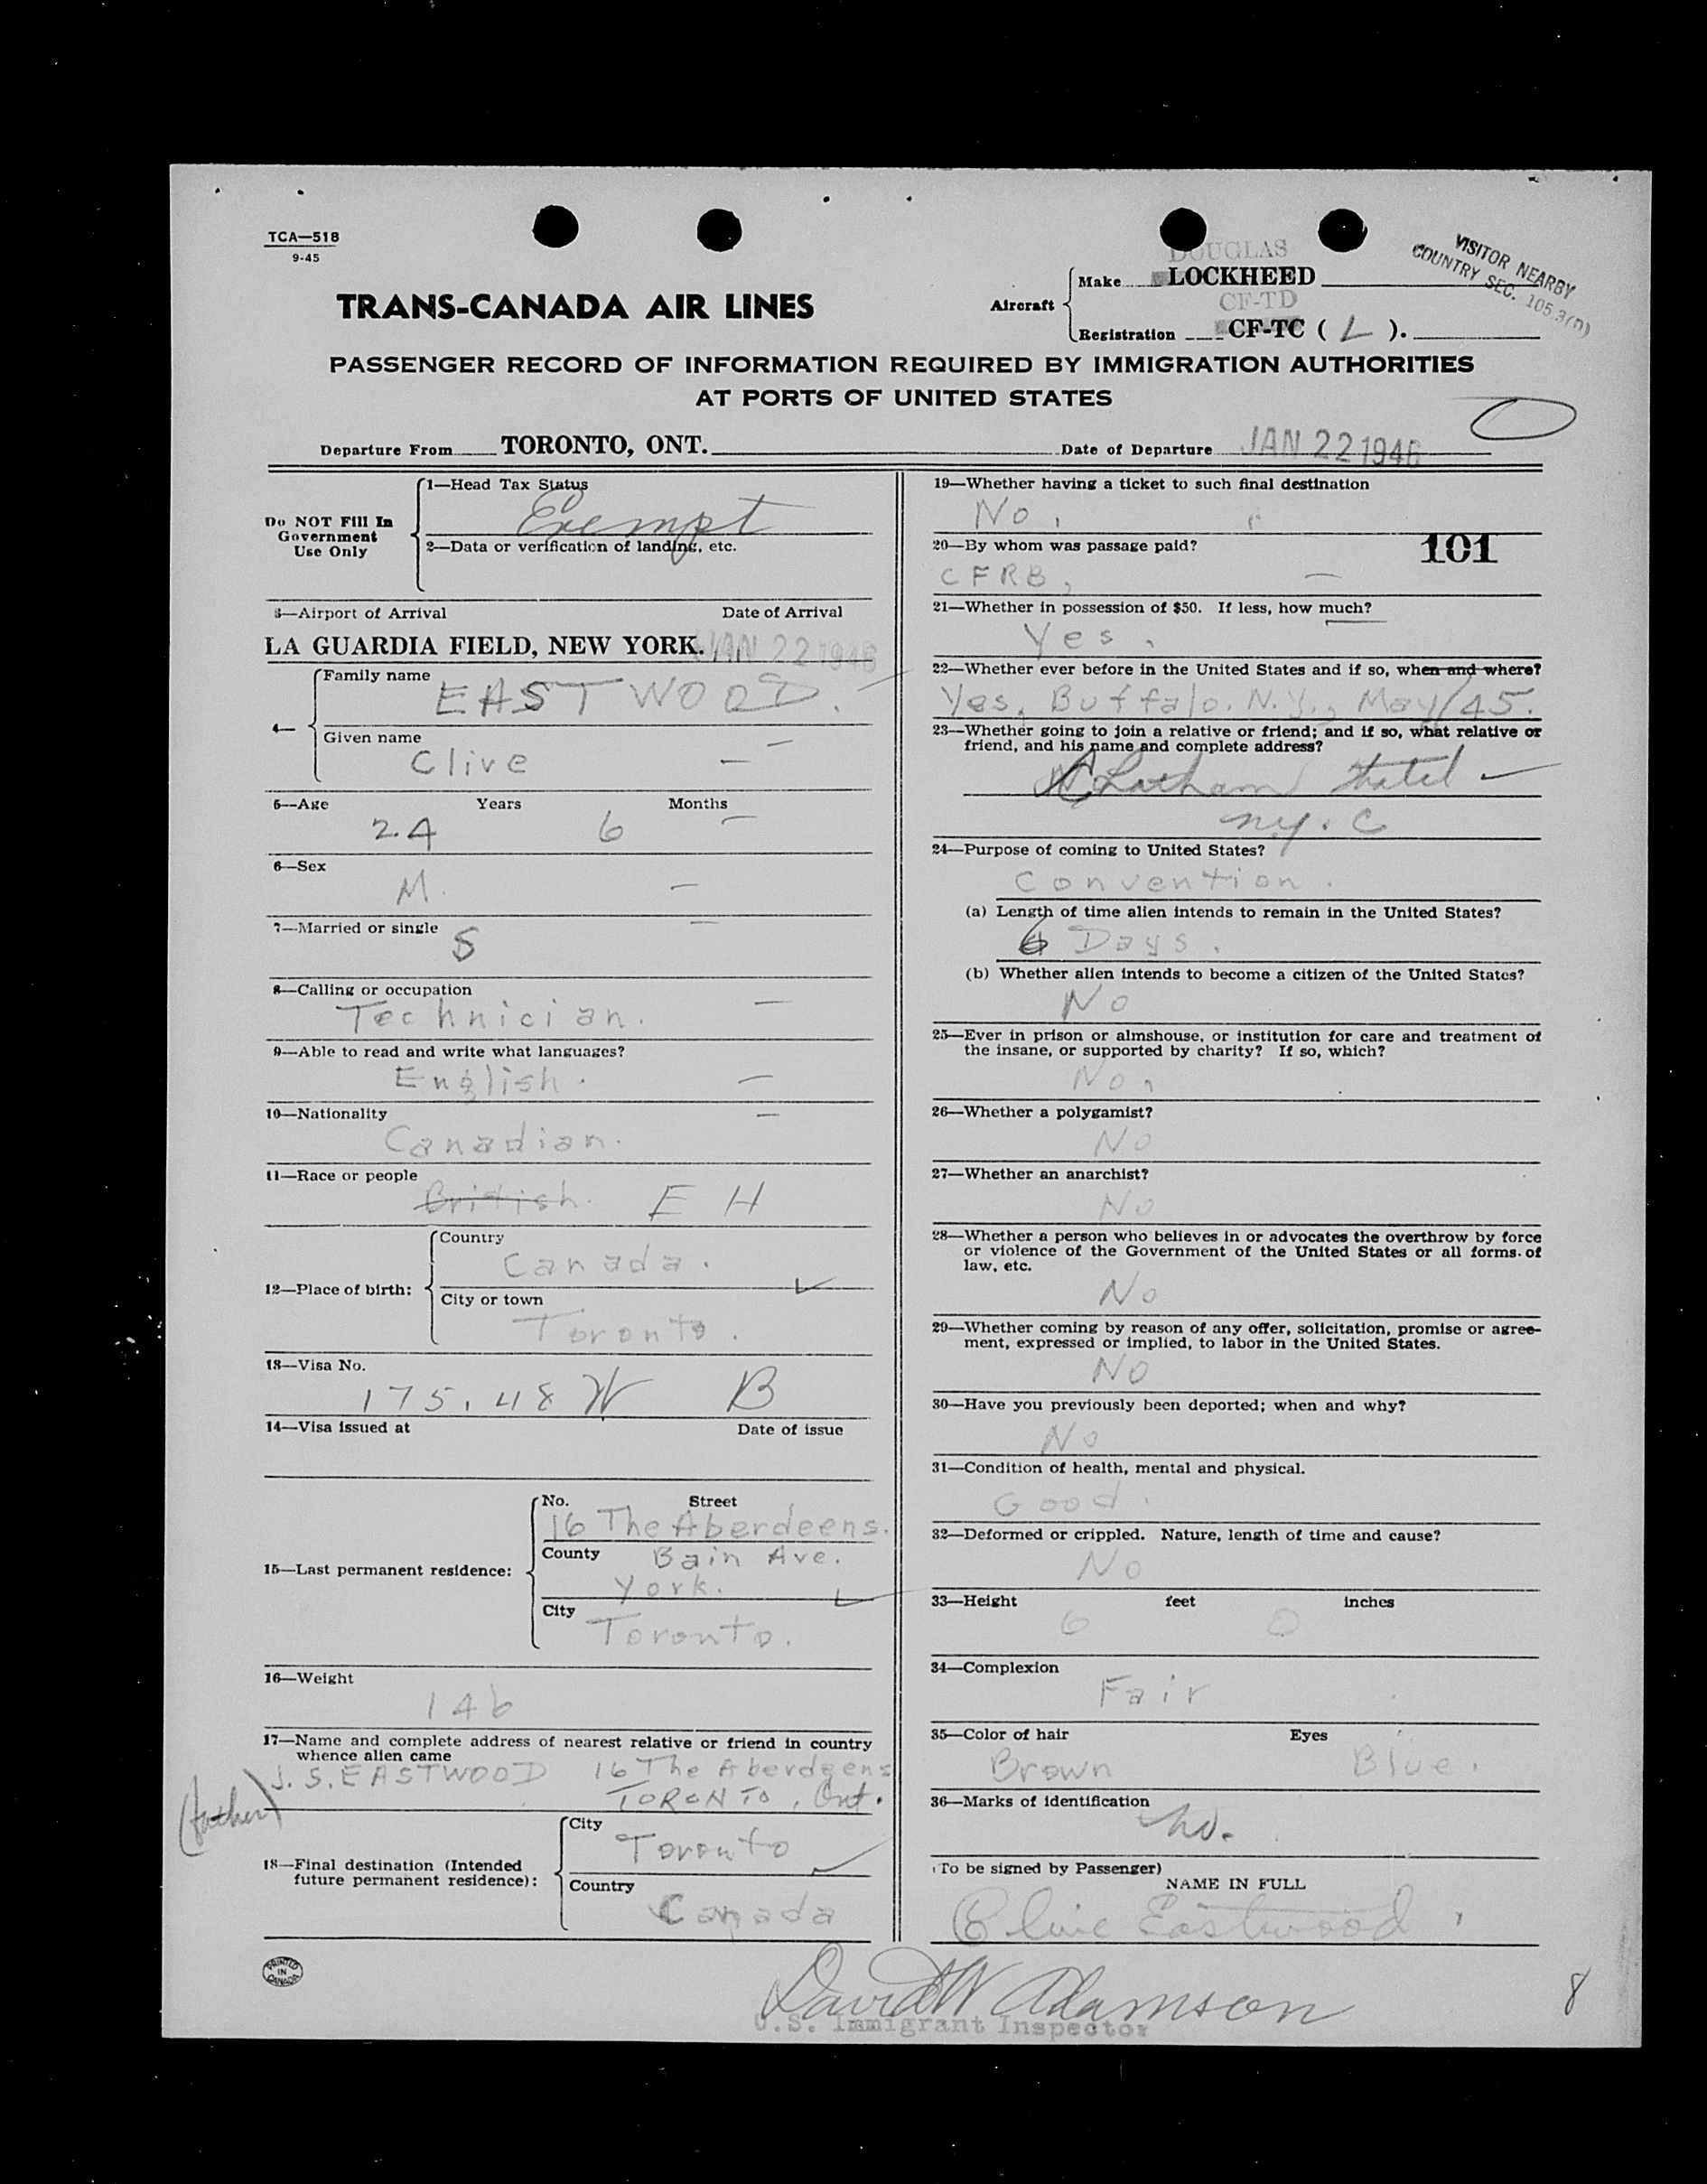 TCA—518
9-45
VISITOR NEARBY
COUNTRY SEC. 105.3(n)
DOUGLAS
Aircraft
Make LOCKHEED
CF-TD
Registration CF-TC ( L ).
TRANS-CANADA AIR LINES
PASSENGER RECORD OF INFORMATION REQUIRED BY IMMIGRATION AUTHORITIES
AT PORTS OF UNITED STATES
Departure From TORONTO, ONT. Date of Departure JAN 22 1946
Do NOT Fill In
Government
Use Only
1—Head Tax Status
Exempt
2—Data or verification of landing, etc.
3—Airport of Arrival Date of Arrival
LA GUARDIA FIELD, NEW YORK. JAN 22 1946
4—
Family name
EASTWOOD.
Given name
Clive
5—Age Years Months
24 6
6—Sex
M.
7—Married or single
S
8—Calling or occupation
Technician.
9—Able to read and write what languages?
English.
10—Nationality
Canadian.
11—Race or people
British. E H
12—Place of birth:
Country
Canada.
City or town
Toronto.
13—Visa No.
175.48 W B
14—Visa issued at Date of issue
15—Last permanent residence:
No. Street
16 The Aberdeens.
County Bain Ave.
York.
City
Toronto.
16—Weight
146
17—Name and complete address of nearest relative or friend in country
whence alien came
J. S. EASTWOOD 16 The Aberdeens
(father) TORONTO, Ont.
18—Final destination (Intended
future permanent residence):
City
Toronto
Country
Canada
19—Whether having a ticket to such final destination
No.
20—By whom was passage paid? 101
CFRB,
21—Whether in possession of $50. If less, how much?
Yes.
22—Whether ever before in the United States and if so, when and where?
Yes, Buffalo. N.Y., May/45.
23—Whether going to join a relative or friend; and if so, what relative or
friend, and his name and complete address?
Latham Hotel
N.Y.C
24—Purpose of coming to United States?
Convention.
(a) Length of time alien intends to remain in the United States?
6 Days.
(b) Whether alien intends to become a citizen of the United States?
No
25—Ever in prison or almshouse, or institution for care and treatment of
the insane, or supported by charity? If so, which?
No.
26—Whether a polygamist?
No
27—Whether an anarchist?
No
28—Whether a person who believes in or advocates the overthrow by force
or violence of the Government of the United States or all forms of
law, etc.
No
29—Whether coming by reason of any offer, solicitation, promise or agree-
ment, expressed or implied, to labor in the United States.
No
30—Have you previously been deported; when and why?
No
31—Condition of health, mental and physical.
Good.
32—Deformed or crippled. Nature, length of time and cause?
No
33—Height feet inches
6 0
34—Complexion
Fair
35—Color of hair Eyes
Brown Blue.
36—Marks of identification
No.
(To be signed by Passenger)
NAME IN FULL
Clive Eastwood
PRINTED
IN
CANADA
David W Adamson
U.S. Immigrant Inspector
8